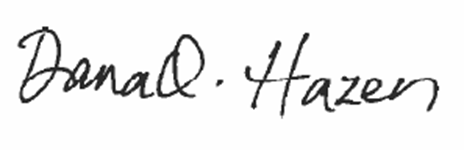 Dana Q. Hazen